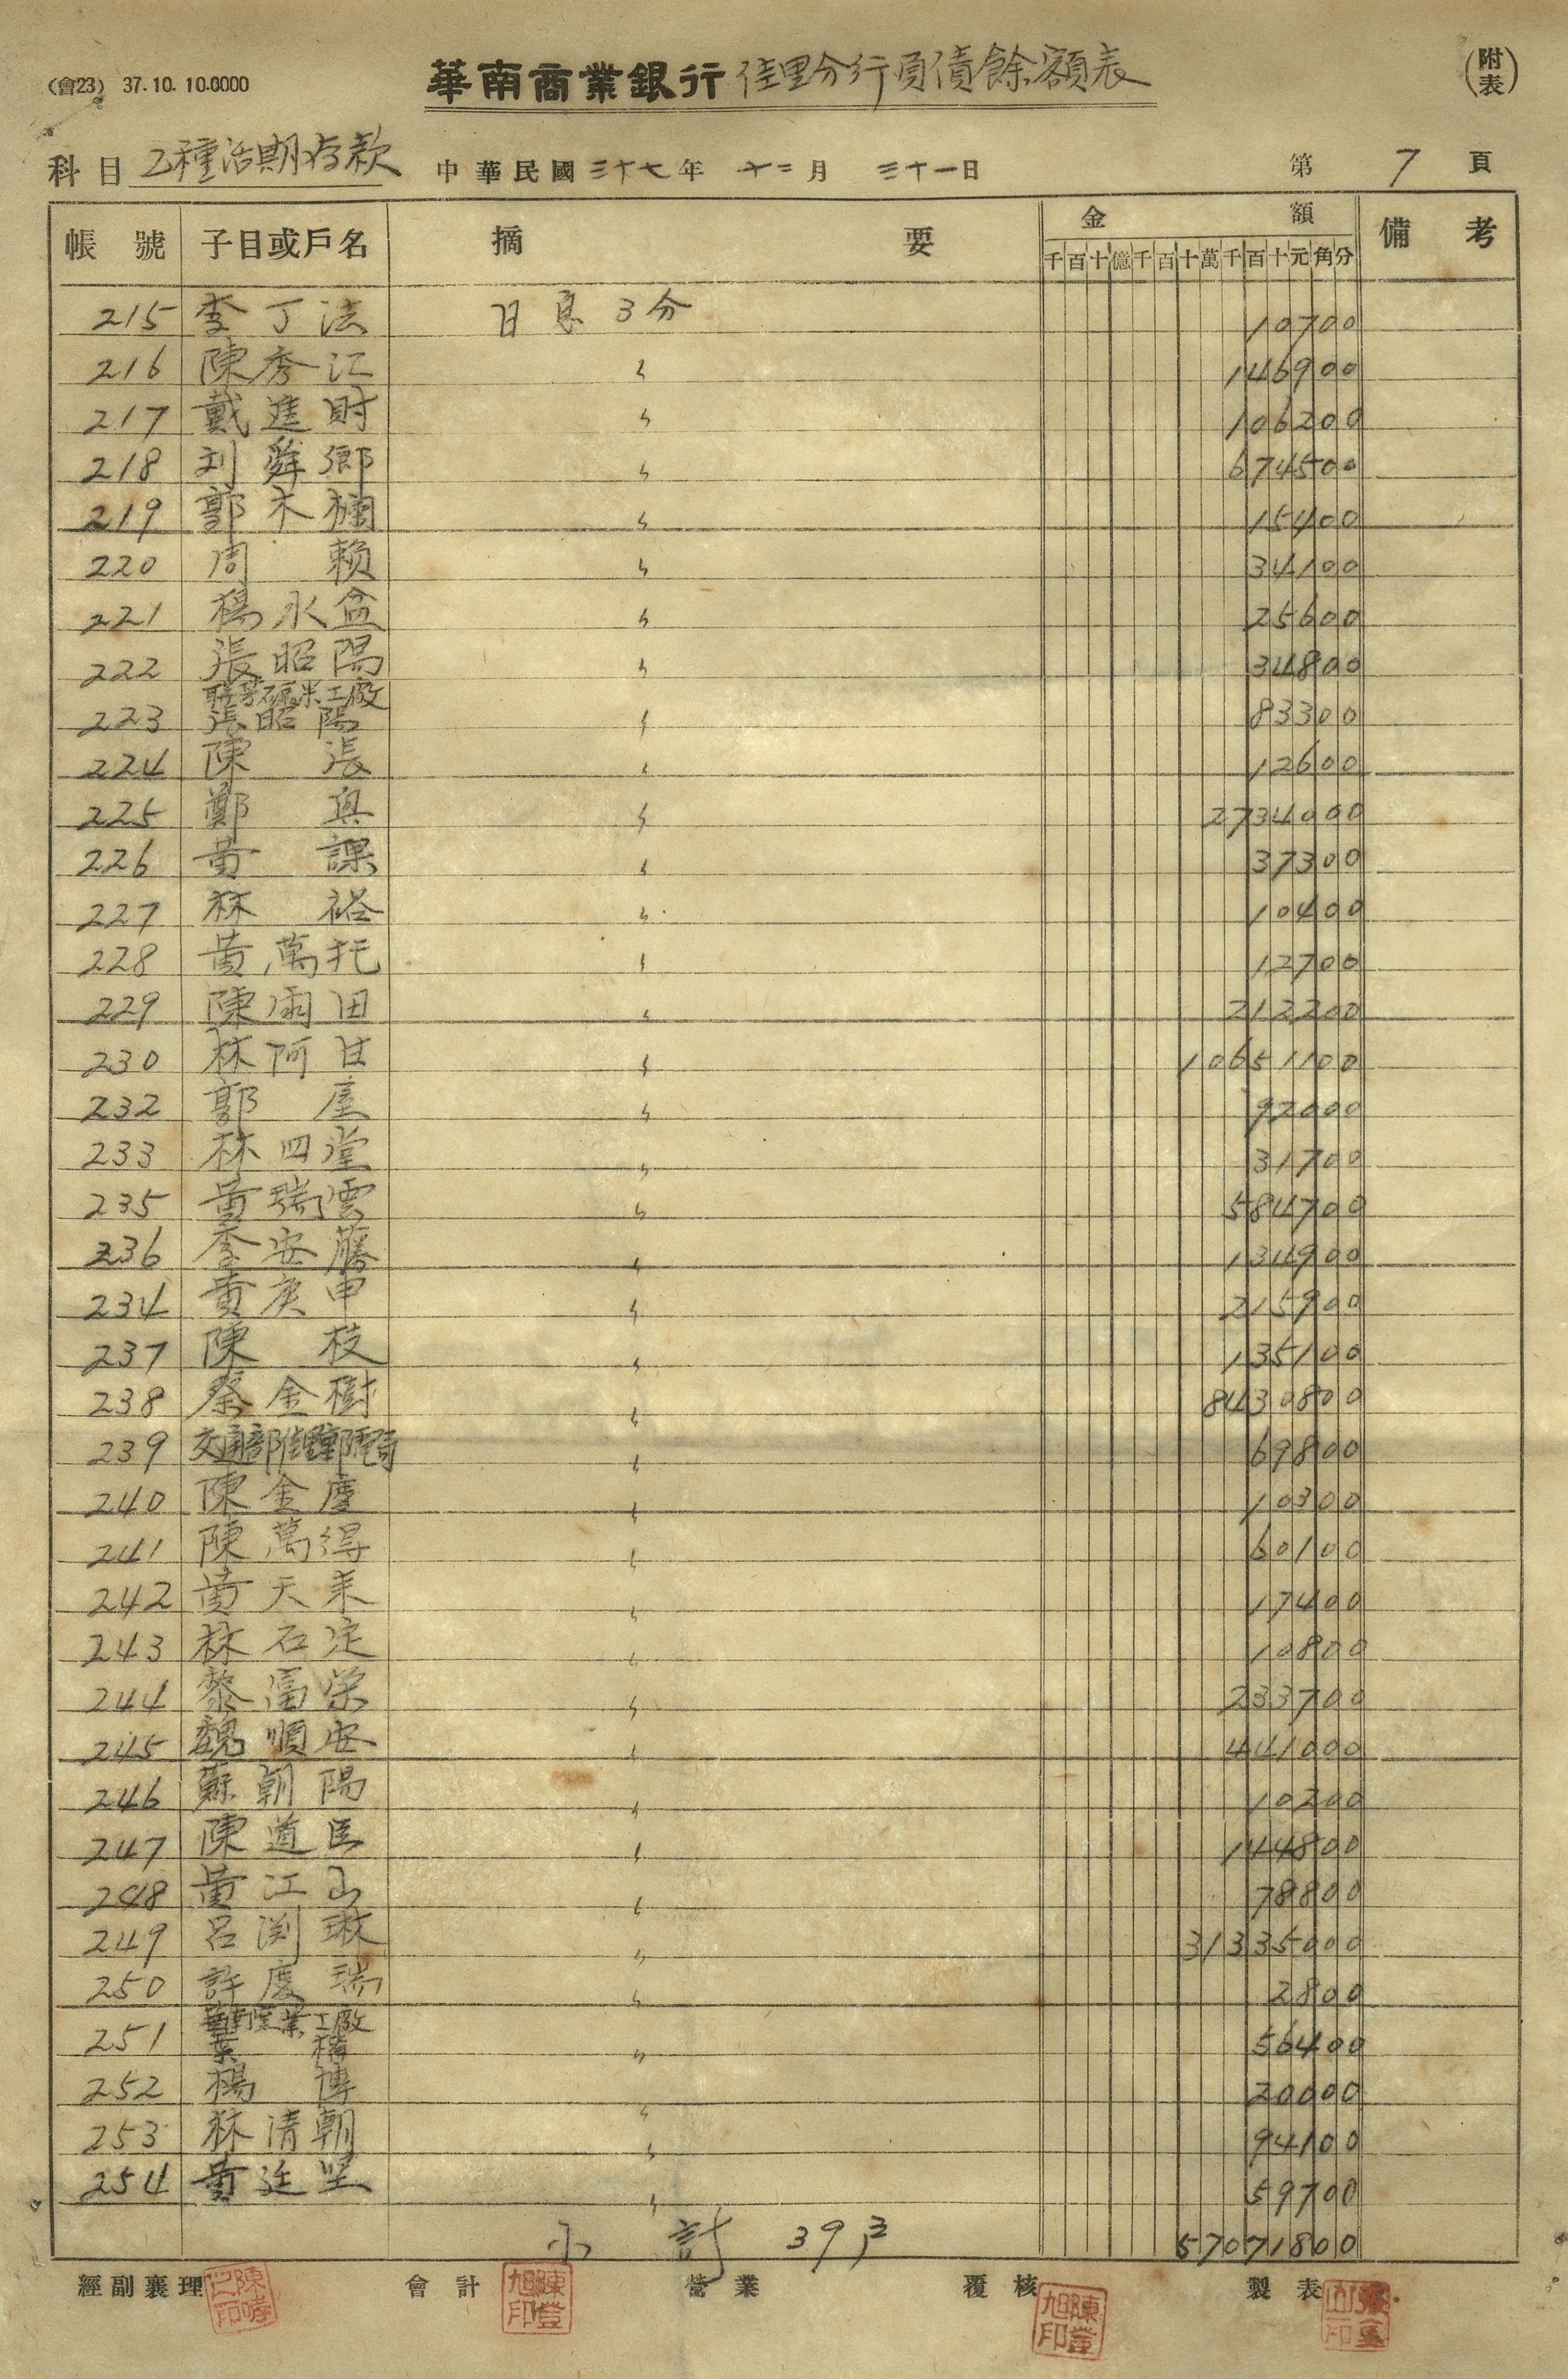 (會23) 37.10.10.0000
華南商業銀行佳里分行負債餘額表
(附表)
科目 乙種活期存款 中華民國三十七年 十二月 三十一日 第 7 頁
帳號 子目或戶名 摘要 金額 備考
千百十億千百十萬千百十元角分
215 李丁法 日息3分 10700
216 陳秀江 〃 146900
217 戴進財 〃 106200
218 刘舜鄉 〃 674500
219 郭木楠 〃 15400
220 周賴 〃 34100
221 楊永盆 〃 25600
222 張昭陽 〃 34800
223 聯芳碾米工廠 張昭陽 〃 83300
224 陳張 〃 12600
225 鄭與 〃 2734000
226 黃課 〃 37300
227 林裕 〃 10400
228 黃萬托 〃 12700
229 陳雨田 〃 212200
230 林阿甘 〃 10651100
232 郭屋 〃 92000
233 林四堂 〃 31700
235 黃瑞雲 〃 584700
236 李安藤 〃 134900
234 黃庚申 〃 215900
237 陳枝 〃 135100
238 蔡金樹 〃 8430800
239 交通部佳里郵電局 〃 69800
240 陳金慶 〃 10300
241 陳萬得 〃 60100
242 黃天来 〃 17400
243 林石定 〃 10800
244 黎富榮 〃 233700
245 魏順安 〃 441000
246 蘇朝陽 〃 10200
247 陳道臣 〃 144800
248 黃江山 〃 78800
249 呂渕琳 〃 31335000
250 許慶瑞 〃 2800
251 工廠 葉 〃 56400
252 楊博 〃 20000
253 林清朝 〃 94100
254 黃廷堅 〃 59700
小計 39戸 57071800
經副襄理 會計 營業 覆核 製表
陳登旭印
陳登旭印